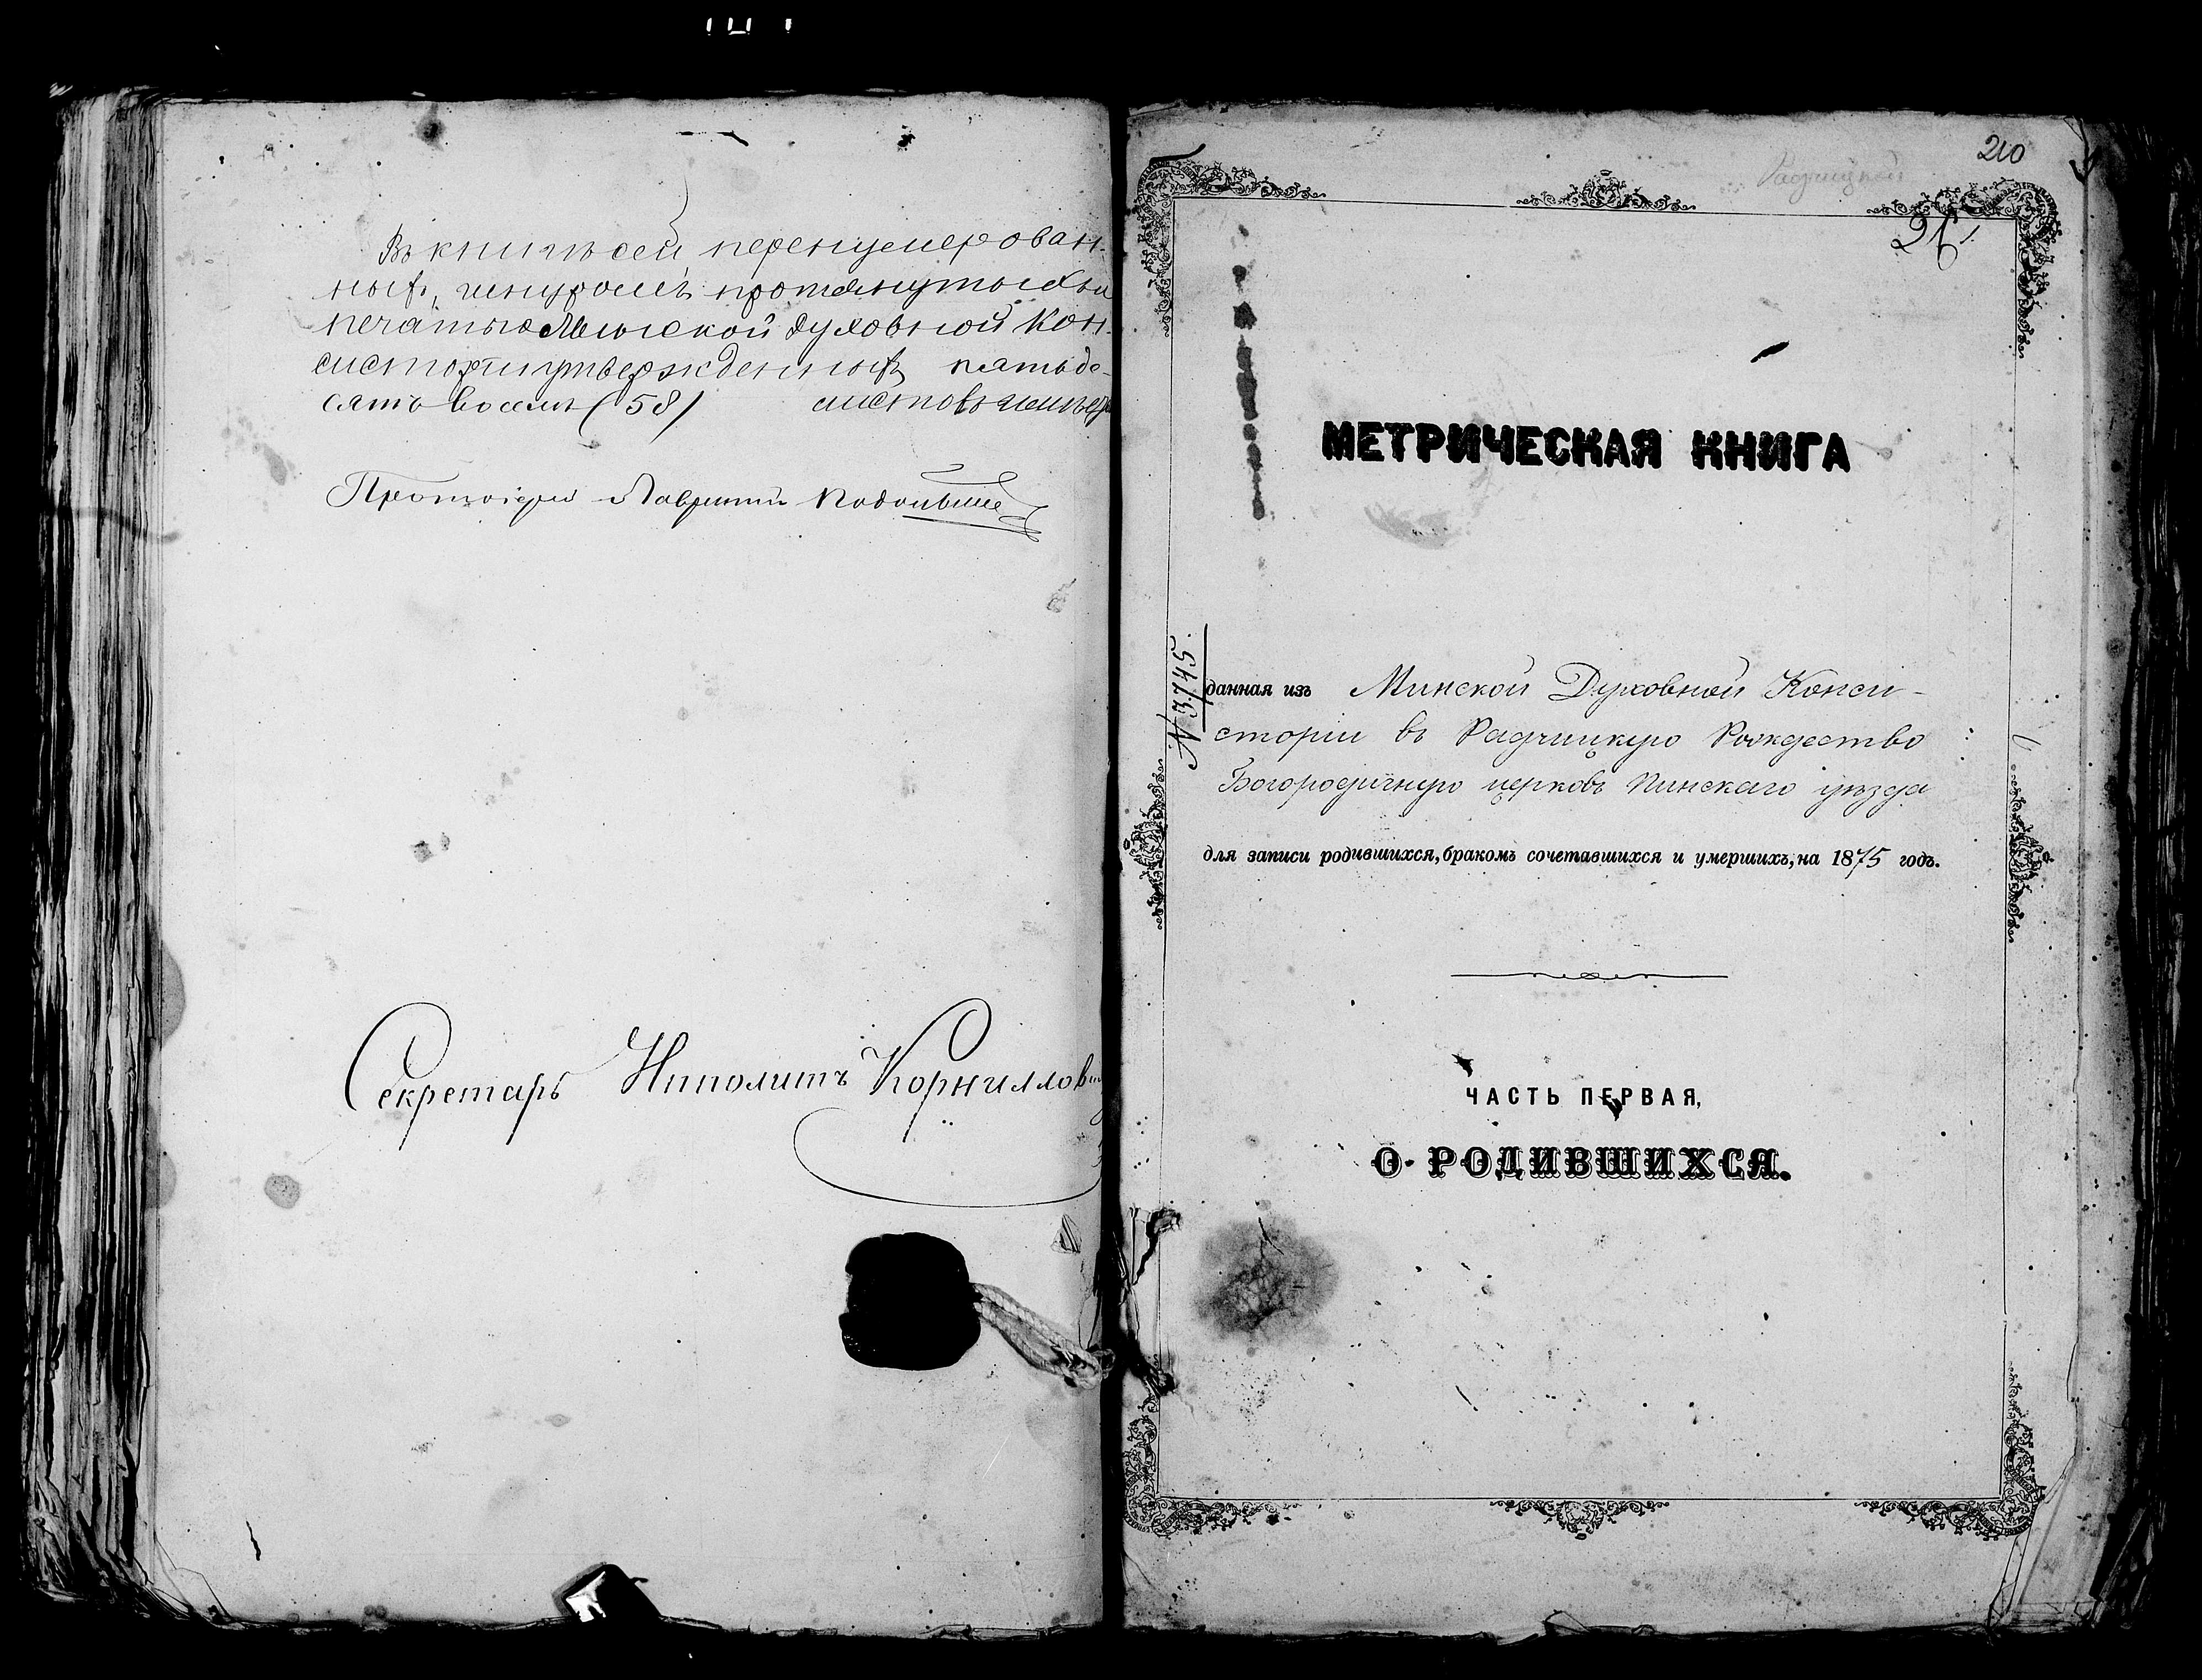 Въ книгѣ сей перенумерован-
ныхъ, шнуромъ протянутыхъ и
печатью Минской Духовной Кон-
систоріи утвержденныхъ пятьде-
сятъ восемь (58) листовъ
Протоіерей
Секретарь Ипполитъ Корнилов
210
Радчицкой
26.
МЕТРИЧЕСКАЯ КНИГА
№ 3745.
данная изъ Минской Духовной Конси-
сторіи въ Радчицкую Рождество
Богородичную церковь Пинскаго уѣзда
для записи родившихся, бракомъ сочетавшихся и умершихъ, на 1875 годъ.
ЧАСТЬ ПЕРВАЯ,
О РОДИВШИХСЯ.